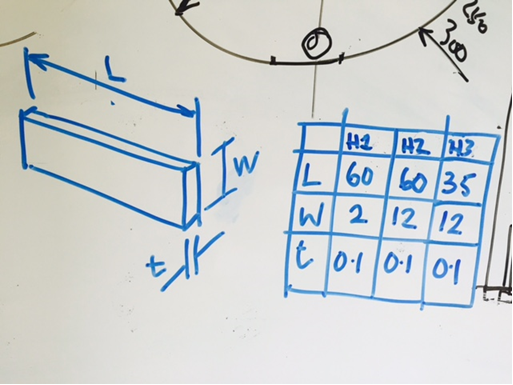 250
300
L
W
t
H1 H2 H3
L 60 60 35
W 2 12 12
t 0.1 0.1 0.1